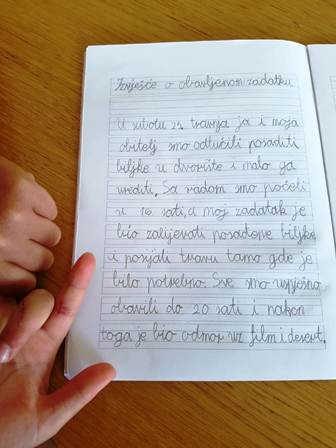 Izvješće o obavljenom zadatku
U subotu 24. travnja ja i moja
obitelj smo odlučili posaditi
biljke u dvorište i malo ga
urediti. Sa radom smo počeli
u 16 sati, a moj zadatak je
bio zalijevati posađene biljke
i posijati travu tamo gdje je
bilo potrebno. Sve smo uspješno
obavili do 20 sati i nakon
toga je bio odmor uz film i desert.